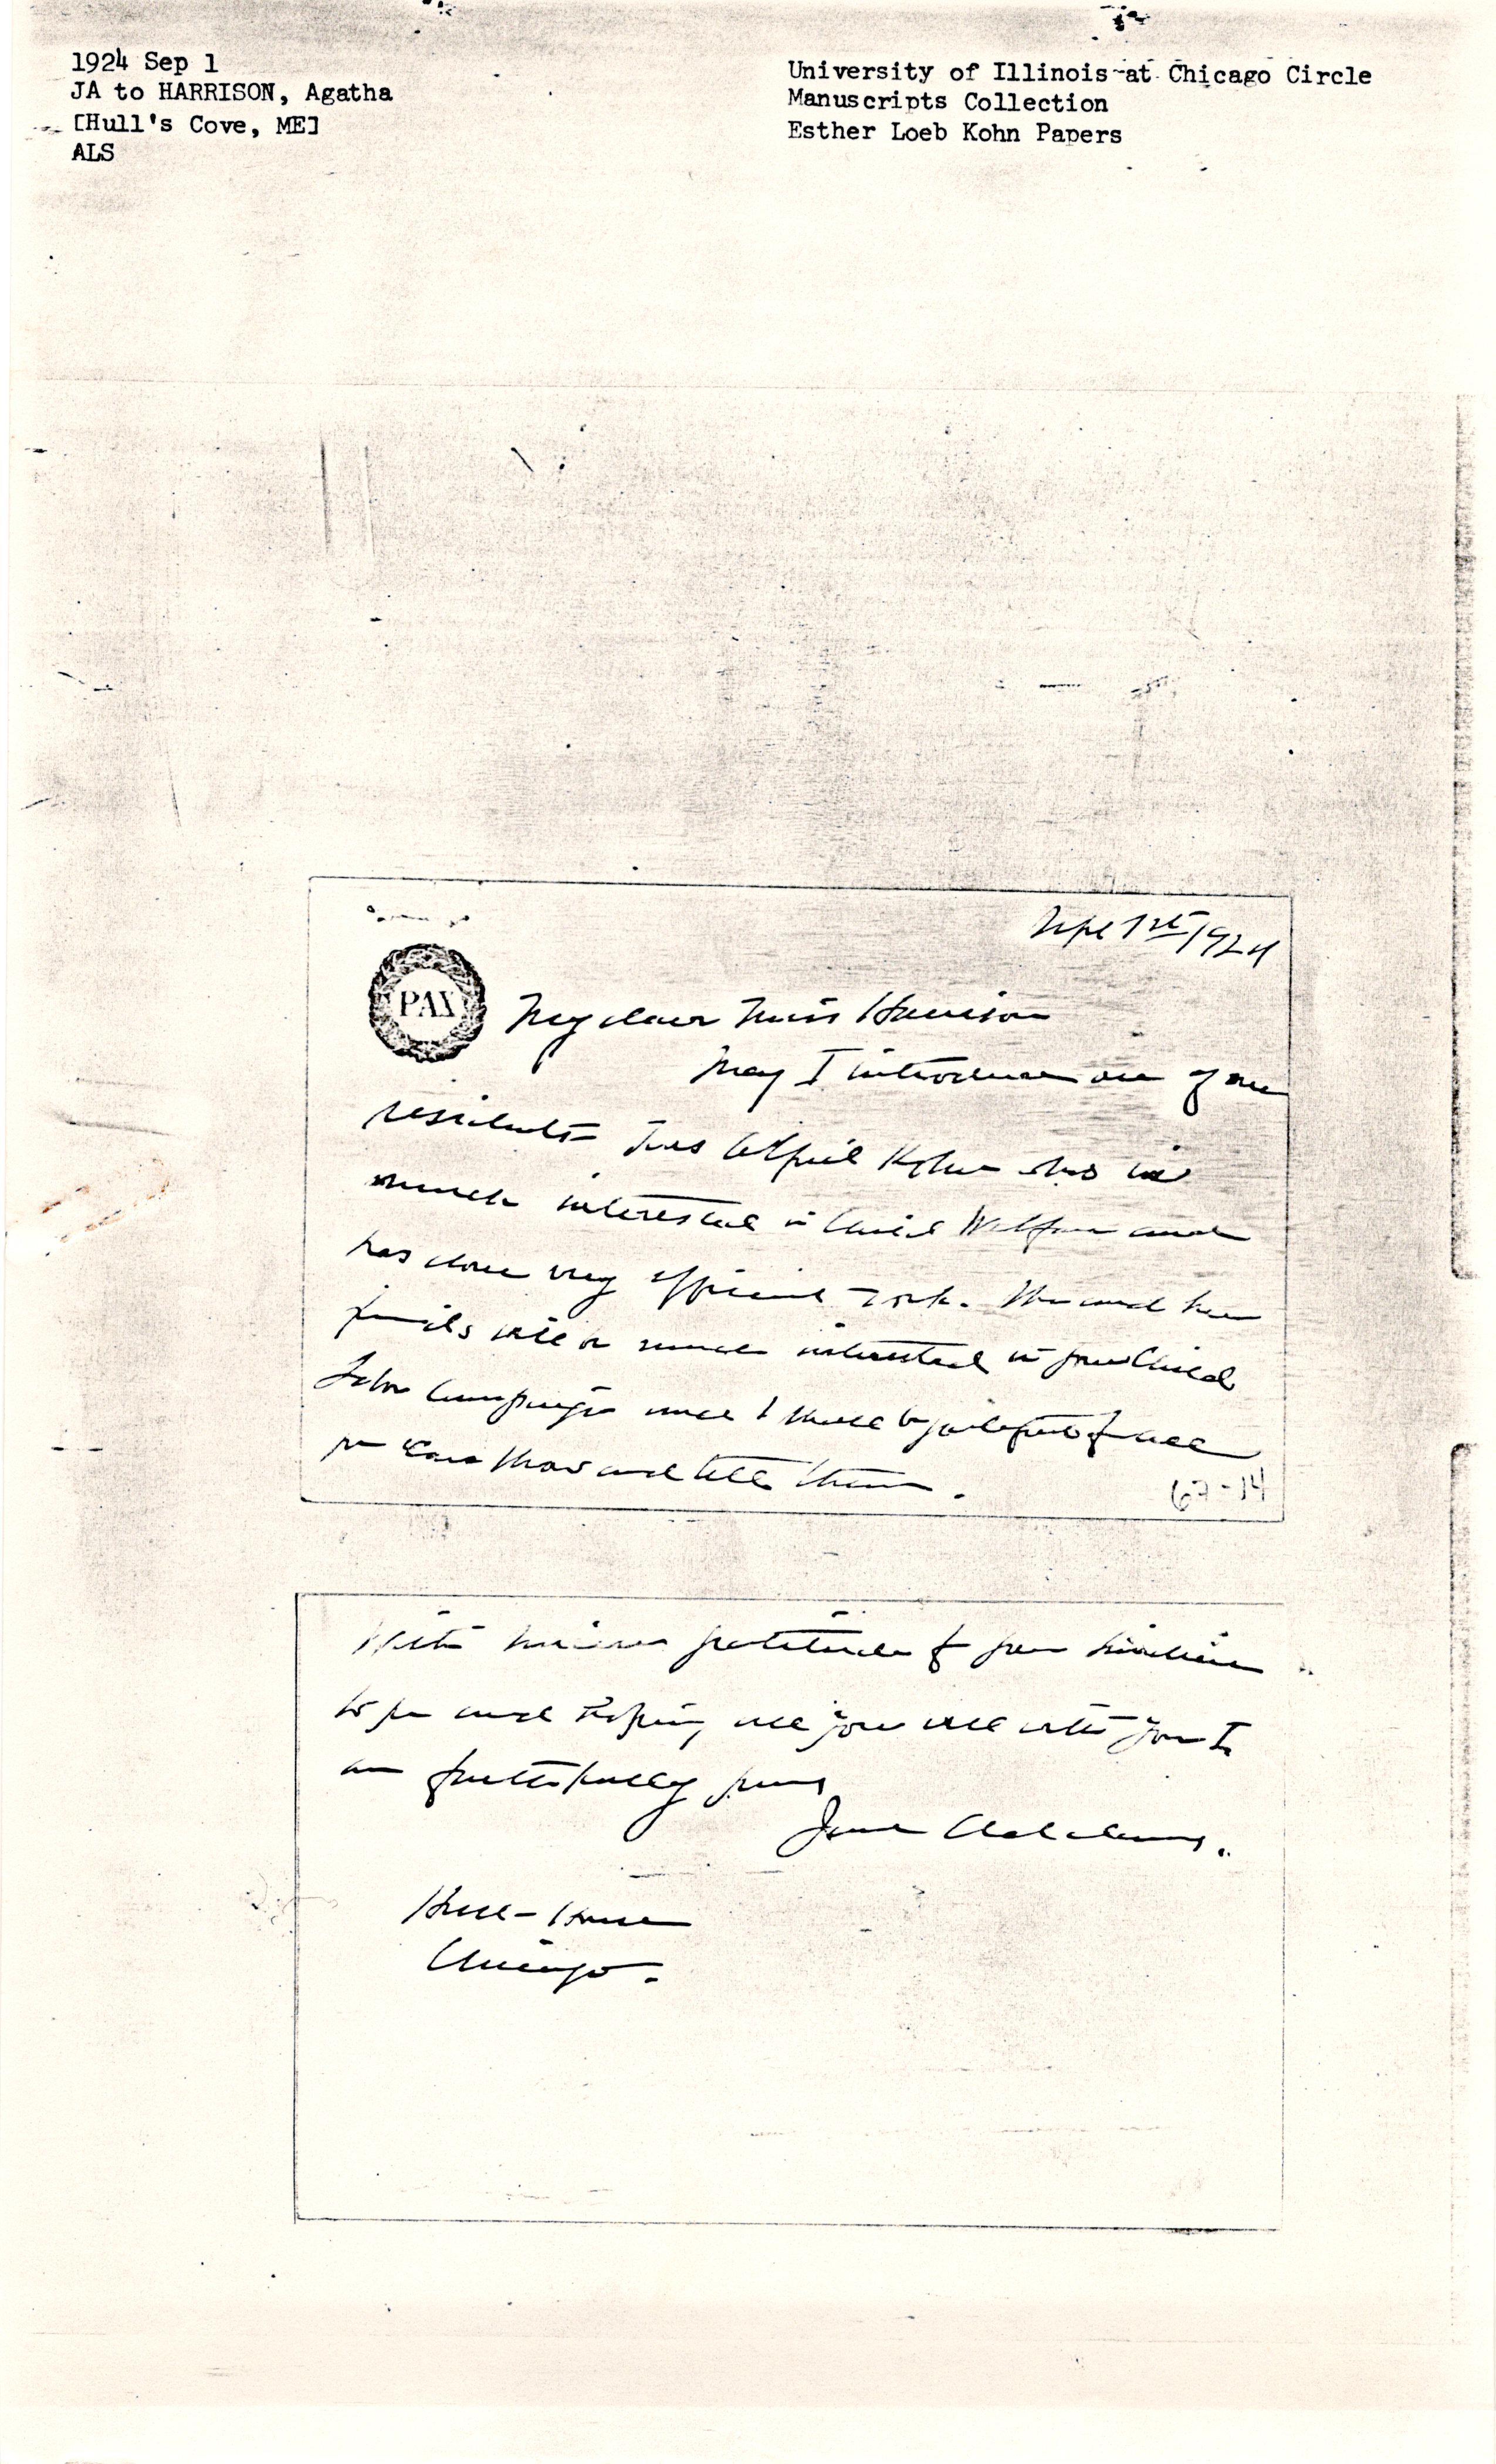 1924 Sep 1
JA to HARRISON, Agatha
[Hull's Cove, ME]
ALS
University of Illinois at Chicago Circle
Manuscripts Collection
Esther Loeb Kohn Papers
Sept 1st 1924
PAX
My dear Miss Harrison
May I introduce one of our
residents Mrs Alfred Kohn who is
much interested in Child Welfare and
has done very efficient work. She and her
friends will be much interested in your Child
Labor Campaign and I shall be grateful for all
you can show and tell them.
67-14
With sincere gratitude for your kindness
to me and hoping all goes well with you I
am faithfully yours
Jane Addams.
Hull-House
Chicago.